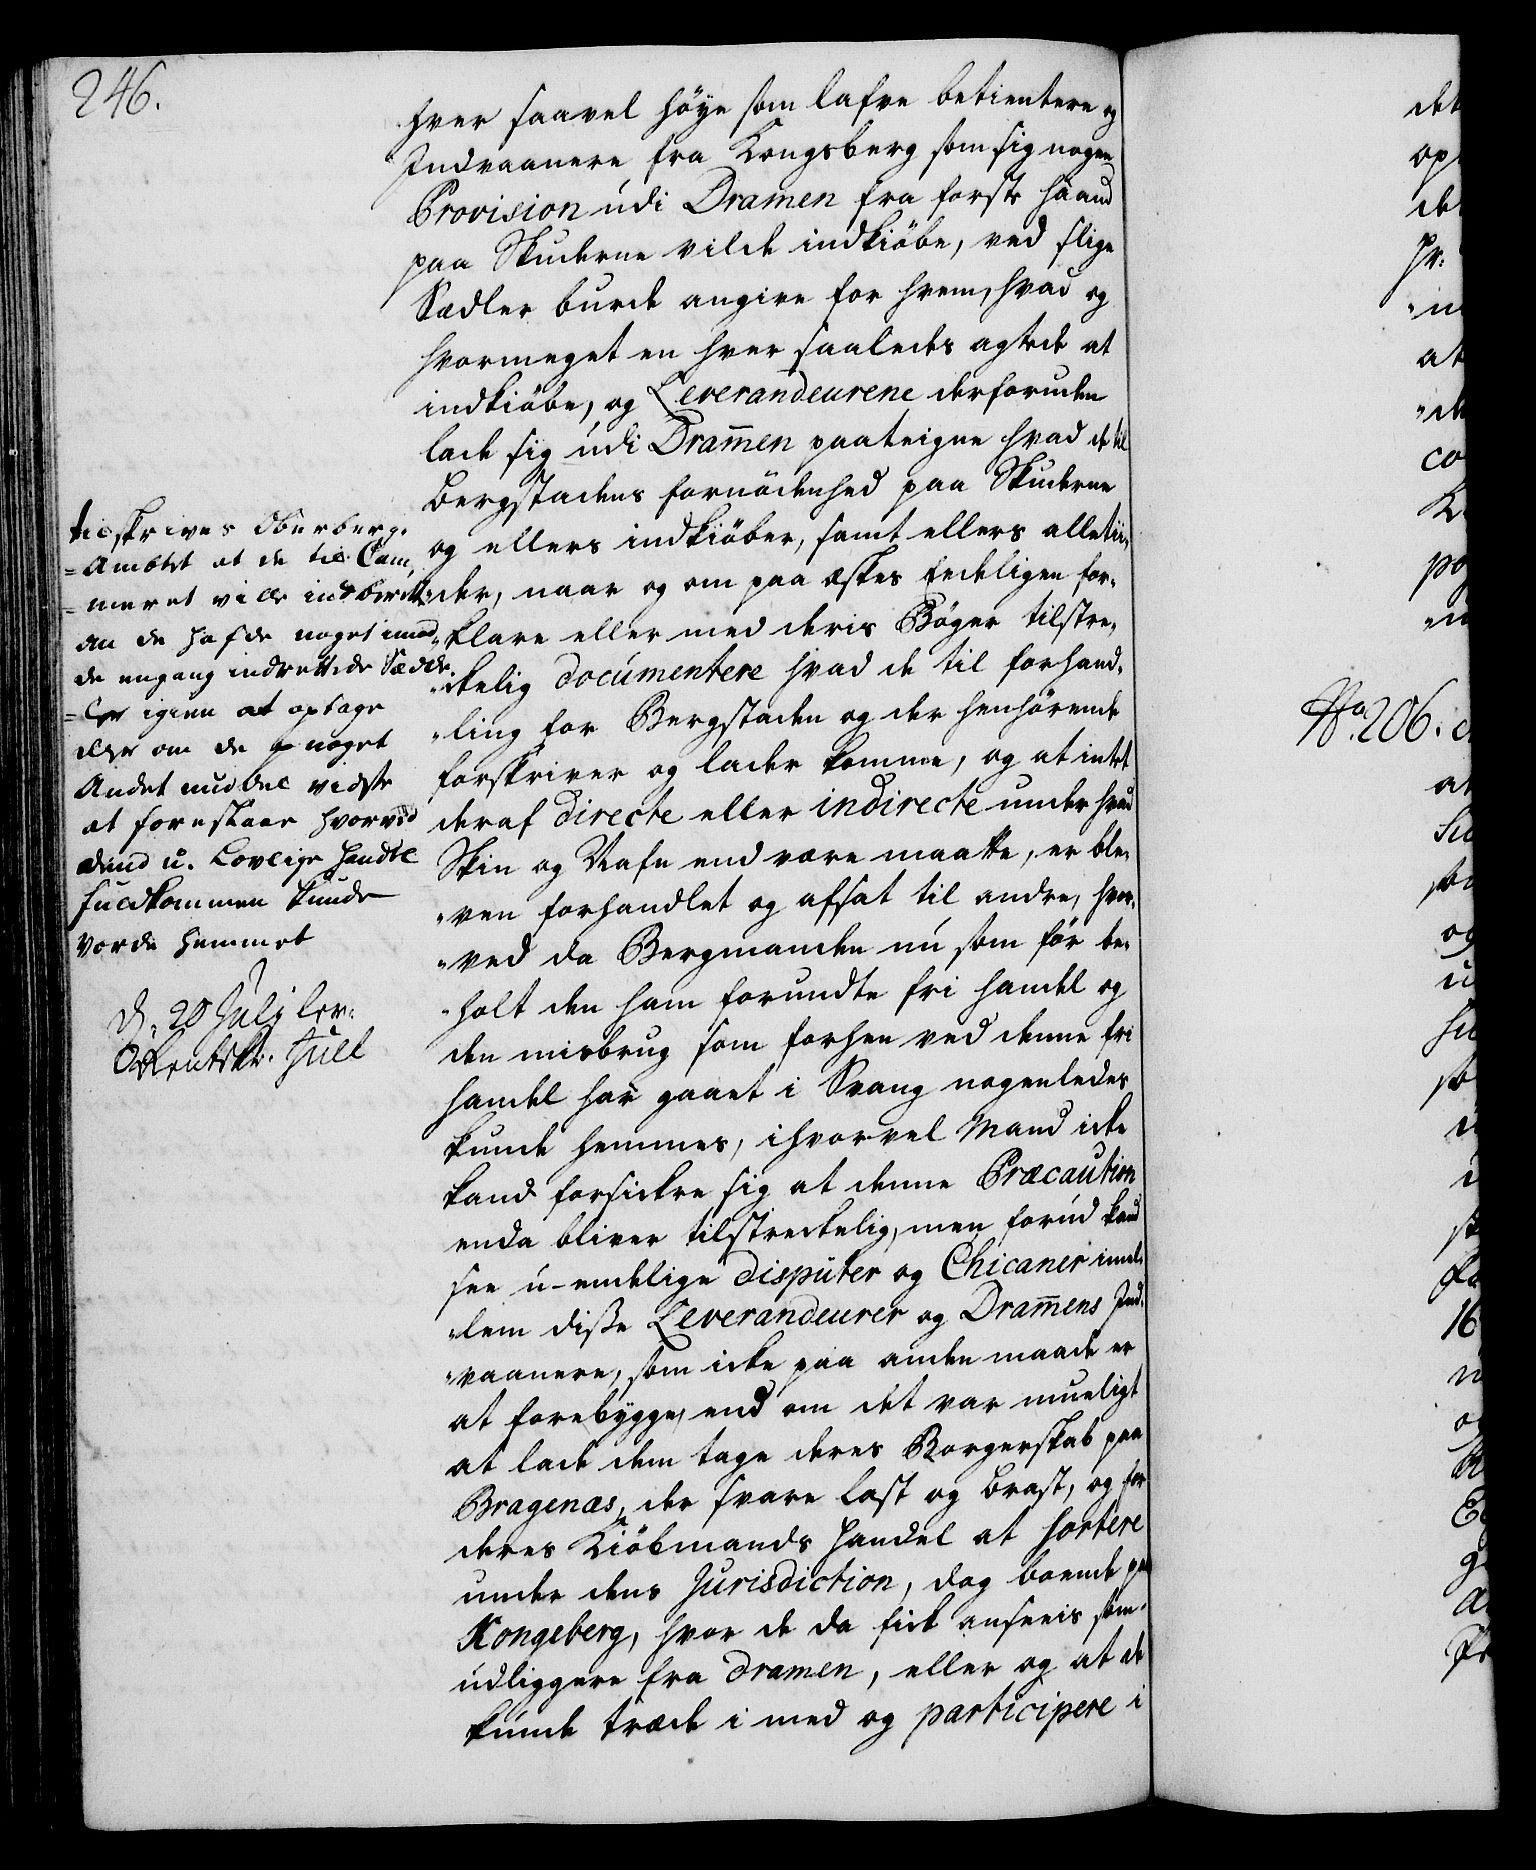 246.
hver saavel höye som lafve betientere og
Indvaanere fra Kongsberg som sig nogen
Provision udi Dramen fra forste haand
paa Skuderne vilde indkiöbe, ved slige
Sedler burde angive for hvem, hvad og
hvormeget en hver saaledes agtede at
indkiöbe, og Leverandeurene derforuden
lade sig udi Dramen paateigne hvad de til
Bergstadens fornödenhed paa Skuderne
og ellers indkiöber, samt ellers alletii„
„der, naar og om paa æskes Eedeligen for„
„klare eller med deris Böger tilstre„
„ckelig documentere hvad de til forhand„
„ling for Bergstaden og der henhörende
forskriver og lader komme, og at intet
deraf directe eller indirecte under hvad
Skin og Nafn end være maatte, er ble„
„ven forhandlet og afsat til andre, hvor„
„ved da Bergmanden nu som för be„
„holt den ham forundte fri handel og
den misbrug som forhen ved denne fri
handel har gaaet i Svang nogenledes
kunde hemmes, ihvorvel Mand icke
kand forsickre sig at denne Præcaution
enda bliver tilstreckelig, men forud kand
see u-endelige disputer og Chicaner imel„
„lem disse Leverandeurer og Dramens Ind„
„vaanere, som icke paa anden maade er
at forebygge, end om det var mueligt
at lade dem tage deres Borgerskab paa
Bragenæs, der svare last og brast, og for
deres Kiöbmands handel at sortere
under dens Jurisdiction, dog boende paa
Kongsberg, hvor de da fick ansees som
udliggere fra Dramen, eller og at de
kunde træde i med og participere i
tilskrives Oberberg„
„Ambtet at de til Cam„
„meret ville indberette
an de hafde noget imod
de engang indrettede Sedd„
„ler igien at optage
eller om de noget
Andet middel vidste
at foreslaae hvorved
dend u. Lovlige handel
fuldkommen kunde
vorde hemmet
d. 20 July lev:
Rentskr. Juel
No. 206.